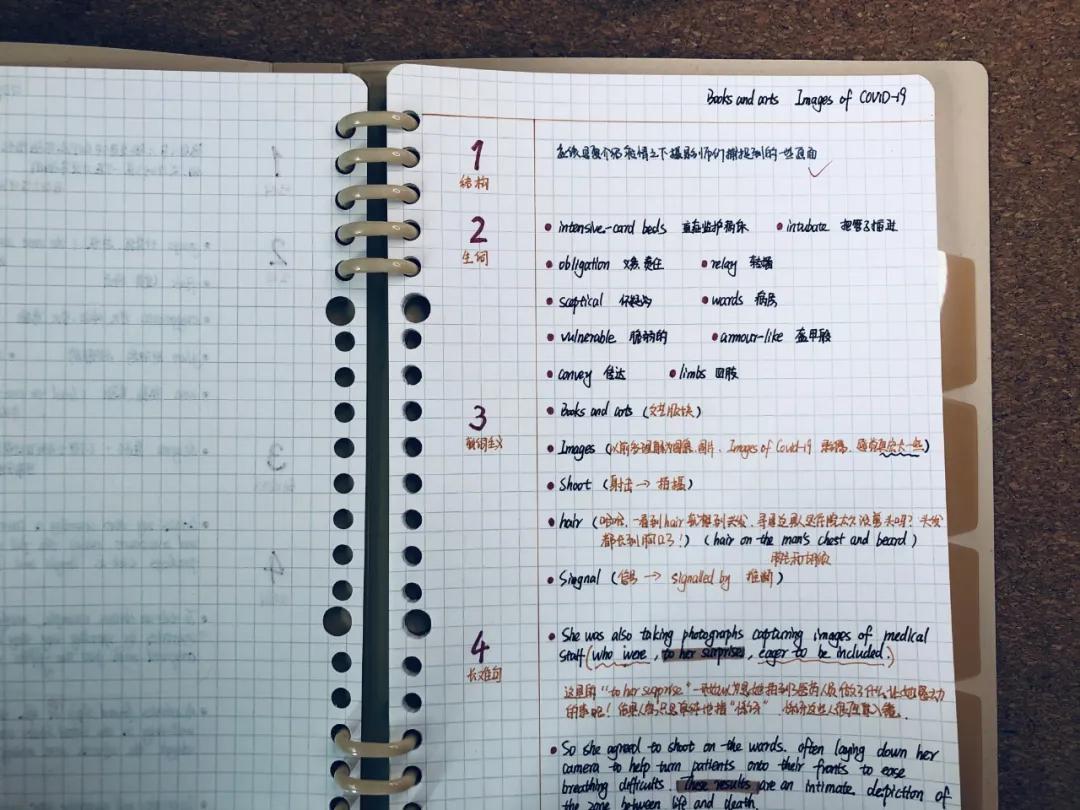 Books and arts Images of COVID-19
1
结构
应该是整个新冠疫情之下摄影师们捕捉到的一些画面
2
生词
intensive-card beds 重症监护病床 intubate 把管子插进
obligation 义务 责任 relay 转播
sceptical 怀疑的 words 病房
vulnerable 脆弱的 armour-like 盔甲般
convey 传达 limbs 四肢
3
熟词生义
Books and arts (文艺版块)
Images (以前多理解为图象.图片. Images of Covid-19
Shoot (射击→拍摄)
hair (哈哈.一看到hair就想到头发.寻思这男人是在院太久没剪头吗? 头发
都长到胸口了!) (hair on the man's chest and beard)
胸毛和胡须
Singnal (信号→ signalled by 推断)
4
长难句
She was also taking photographs capturing images of medical
staff (who were, to her surprise, eager to be included.)
这里的"to her surprise"一开始以为是她拍到了医药人员做了什么让她
的事呢!
So she agreed to shoot on the words. often laying down her
camera to help turn patients onto their fronts to ease
breathing difficults. These results are an intimate depiction of
the zone between life and death.